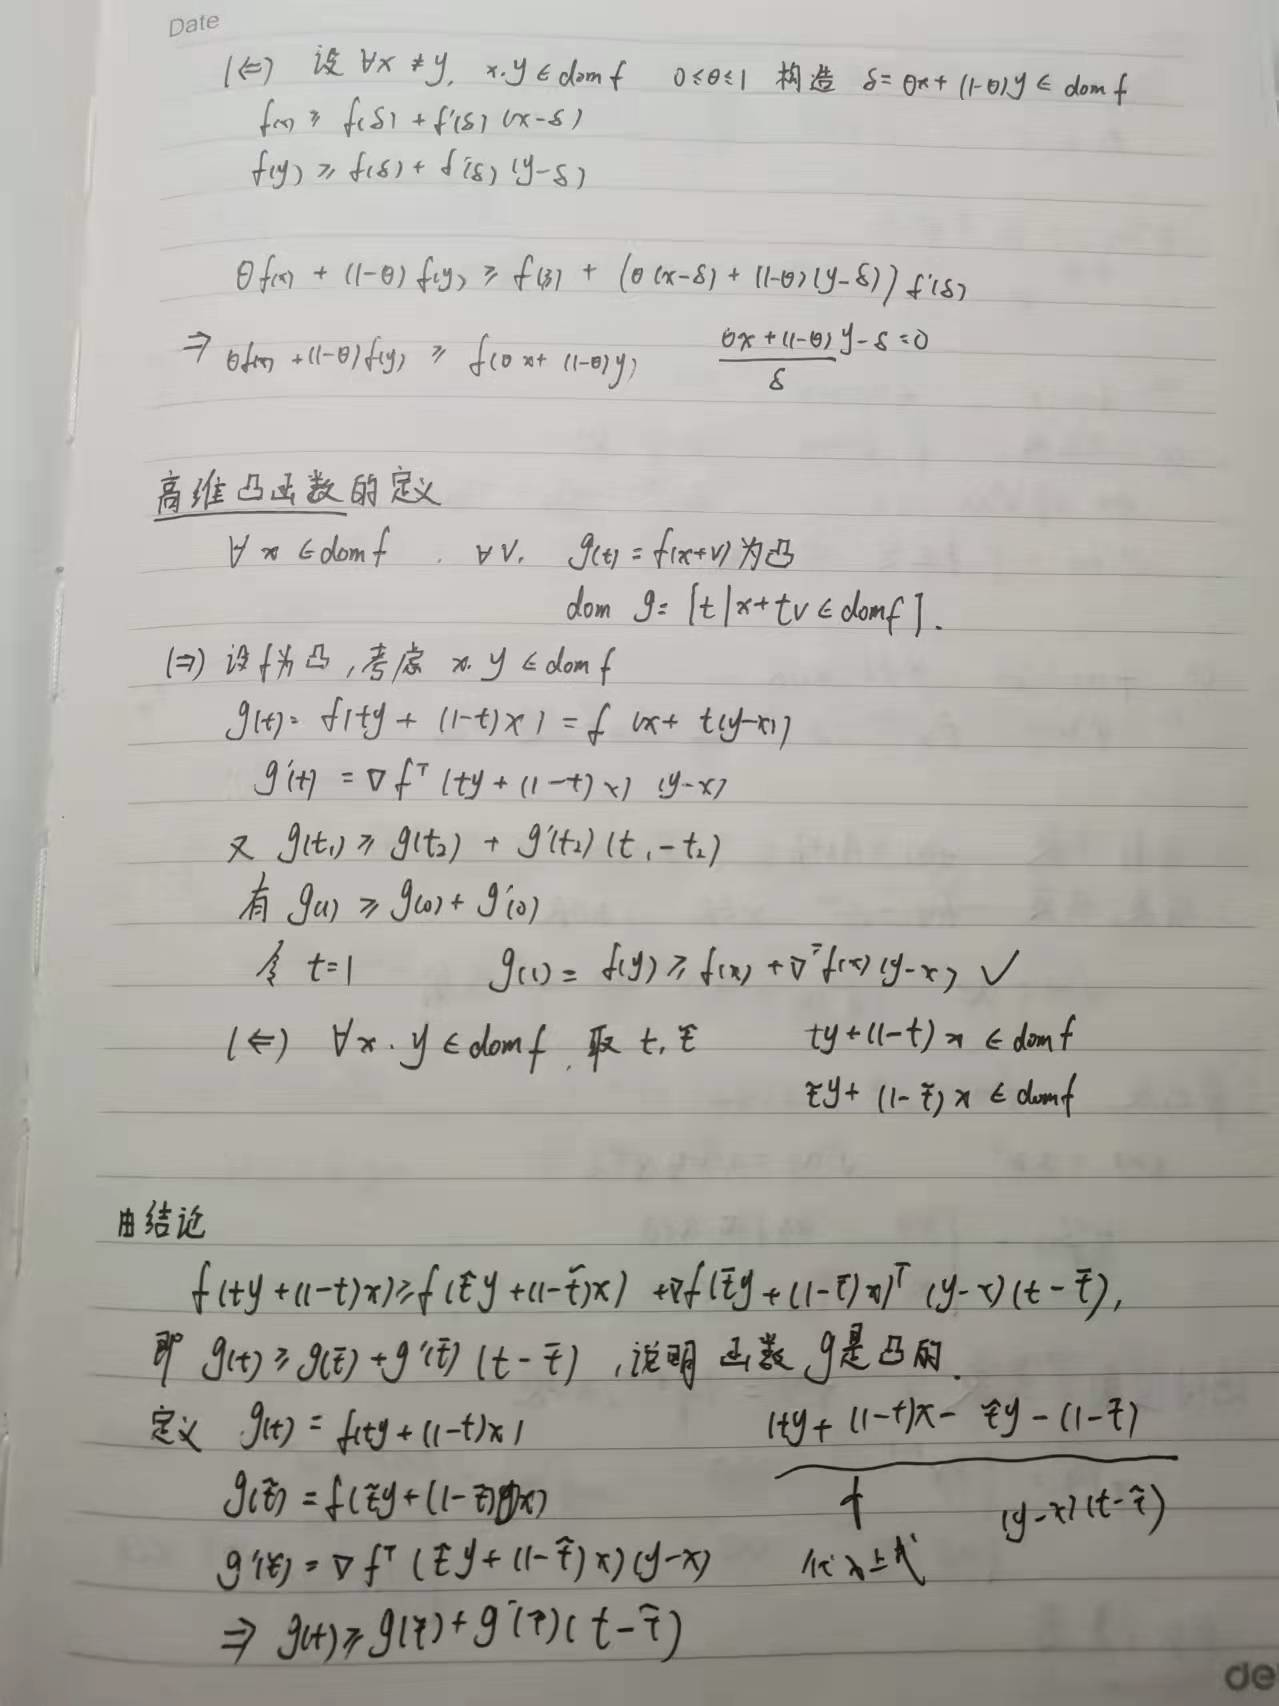 Date
(⇐) 设 ∀x ≠ y, x.y ∈ dom f 0≤θ≤1 构造 δ = θx + (1-θ)y ∈ dom f
f(x) ≥ f(δ) + f'(δ) (x-δ)
f(y) ≥ f(δ) + f'(δ) (y-δ)
θf(x) + (1-θ) f(y) ≥ f(δ) + (θ(x-δ) + (1-θ)(y-δ)) f'(δ)
⇒ θf(x) + (1-θ)f(y) ≥ f(θx + (1-θ)y) θx + (1-θ)y - δ = 0
δ
高维凸函数的定义
∀x ∈ dom f . ∀v. g(t) = f(x+v) 为凸
dom g = [t | x+tv ∈ dom f].
(⇒) 设f为凸,考虑 x. y ∈ dom f
g(t) = f(ty + (1-t)x) = f (x + t(y-x))
g'(t) = ∇f^T (ty + (1-t)x) (y-x)
又 g(t₁) ≥ g(t₂) + g'(t₂) (t₁-t₂)
有 g(1) ≥ g(0) + g'(0)
令 t=1 g(1) = f(y) ≥ f(x) + ∇^T f(x) (y-x) ✓
(⇐) ∀x. y ∈ dom f . 取 t, t̃ ty + (1-t)x ∈ dom f
t̃y + (1-t̃)x ∈ dom f
由结论
f(ty + (1-t)x) ≥ f(t̃y + (1-t̃)x) + ∇f(t̃y + (1-t̃)x)^T (y-x)(t-t̃),
即 g(t) ≥ g(t̃) + g'(t̃) (t-t̃) ,说明 函数 g是凸的.
定义 g(t) = f(ty + (1-t)x) (ty + (1-t)x - t̃y - (1-t̃)
g(t̃) = f(t̃y + (1-t̃)x) (y-x)(t-t̃)
g'(t̃) = ∇f^T (t̃y + (1-t̃)x)(y-x) 代入上式
⇒ g(t) ≥ g(t̃) + g'(t̃)(t-t̃)
de